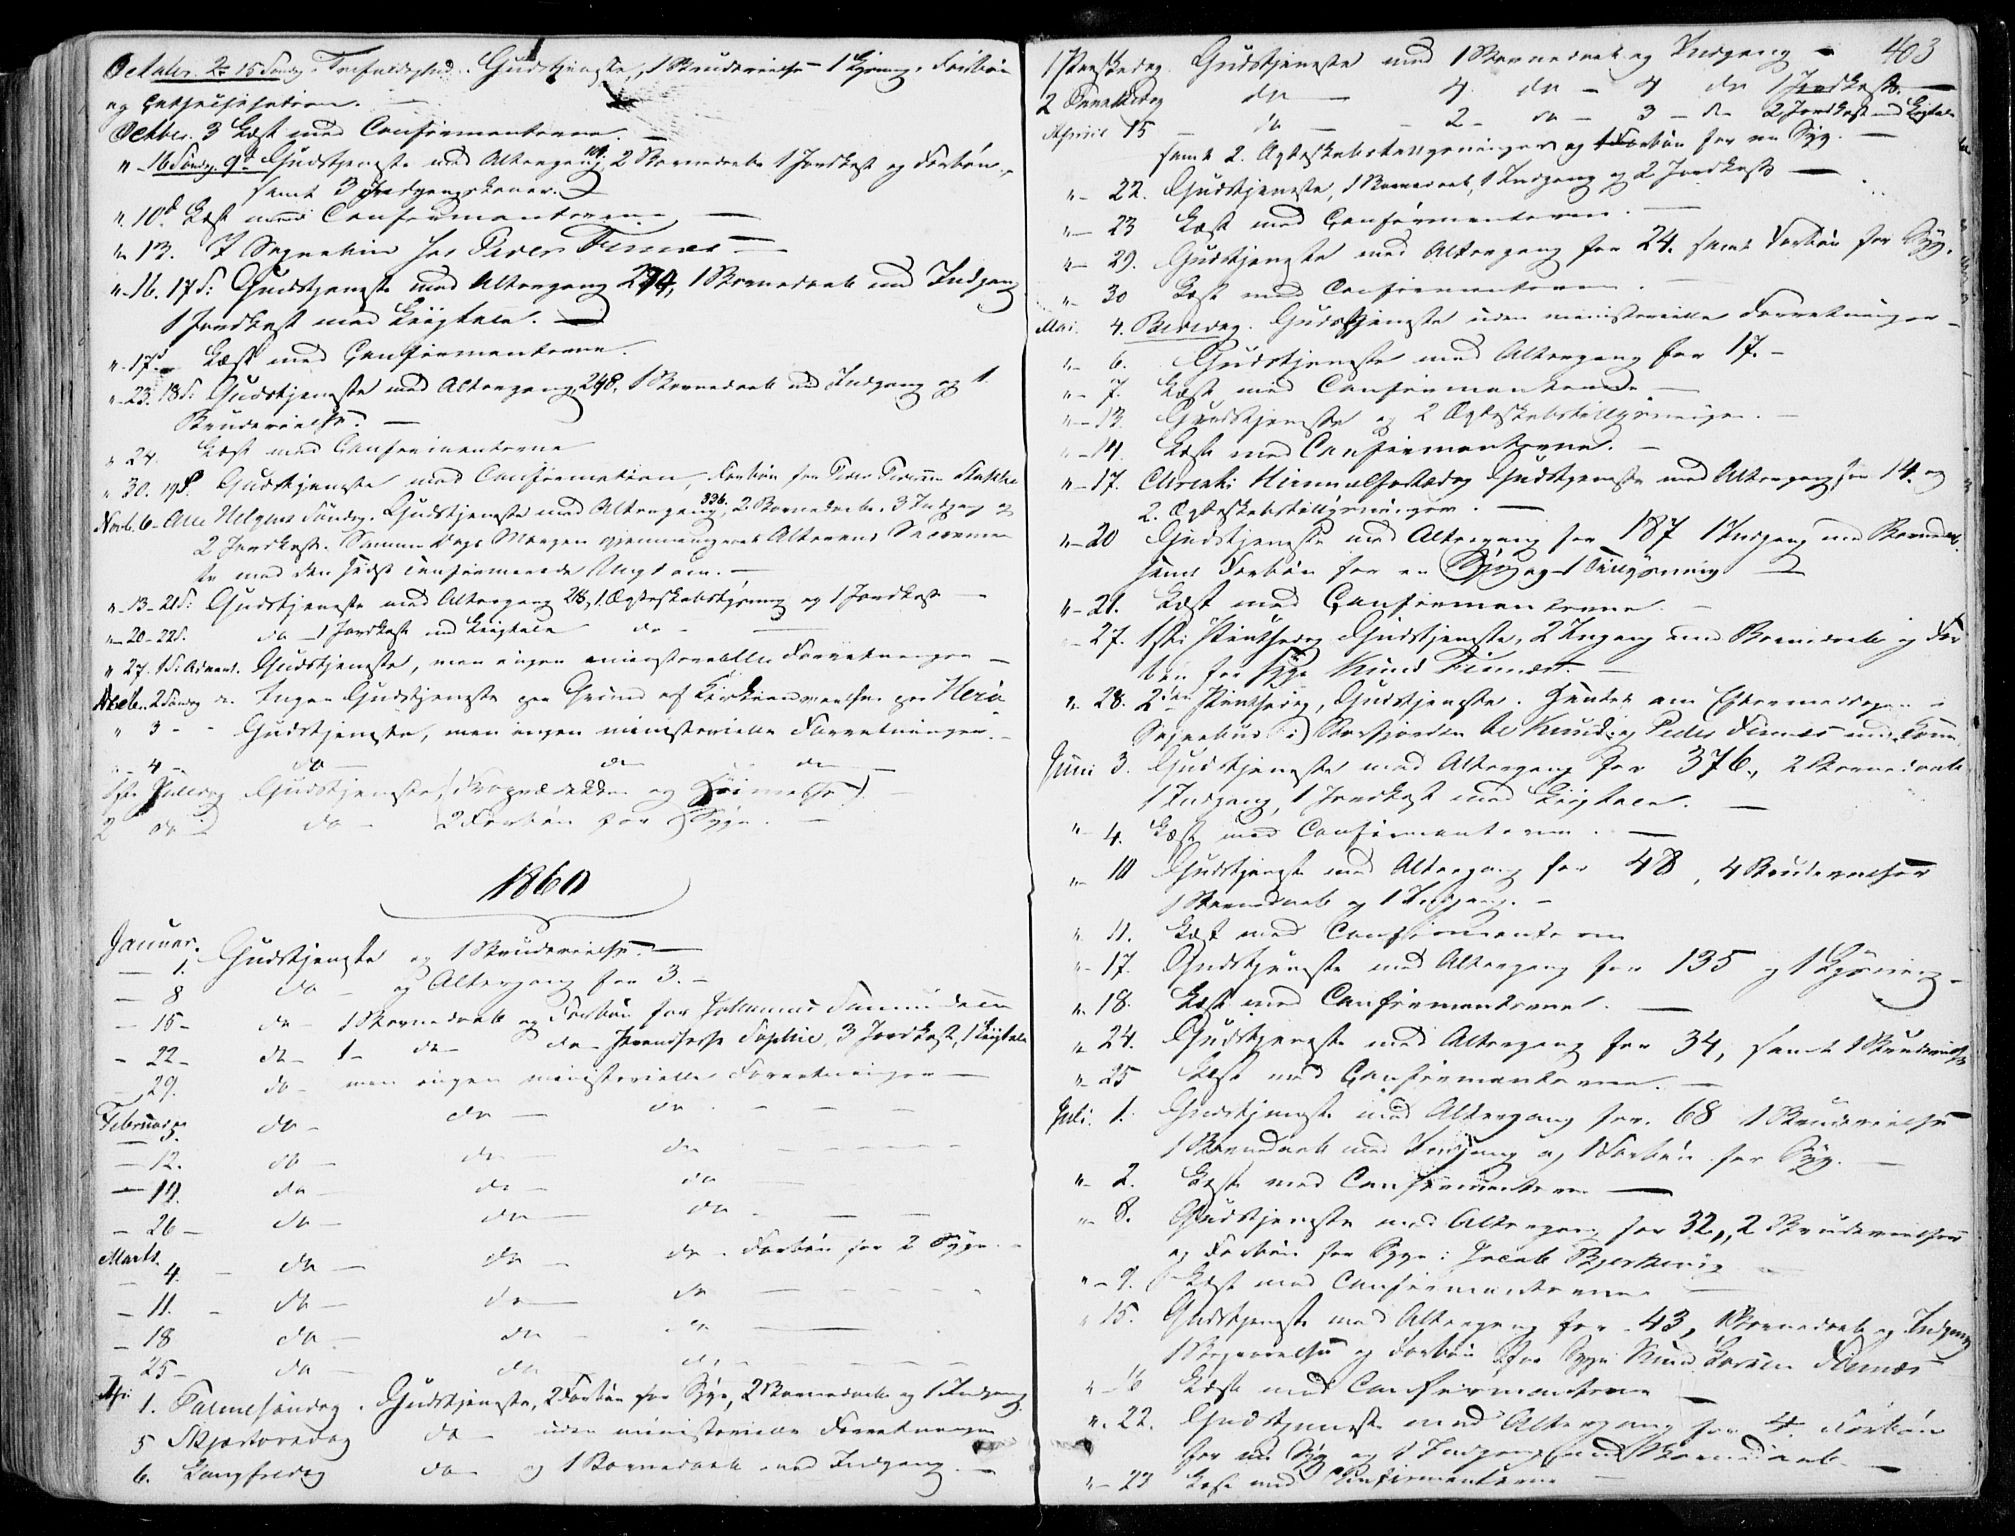 October. 2. 15 Søndag. Trefoldighed. Gudstjeneste, 1 Brudevielse 1 Lysning. Forbøn
og Catheisisation.
October. 3 Læst med Confirmanterne.
" 16 Søndag. 9d. Gudstjeneste med Altergang 2 Barnedaab 1 Jordkast og Forbøn,
samt 3 Indgangskoner.
" 10d. Læst med Confirmanterne
" 13. I Sognebud hos Peder Finnes
" 16. 17 S: Gudstjeneste med Altergang 1 Barnedaab med Indgang
1 Jordkast med Liigtale.
" 17. Læst med Confirmanterne.
" 23. 18 S: Gudstjeneste med Altergang 248. 1 Barnedaab med Indgang og 1
Brudevielse.
" 24. Læst med Confirmanterne
" 30. 19 S. Gudstjeneste med Confirmation, Forbøn for
Novb. 6 Alle Helgens Søndag. Gudstjeneste med Altergang 336, 2 Barnedaab. 3 Indgang og
2 Jordkast. Samme Dags Morgen Alterens Sacramen
te med den sidst confirmerede Ungdom.
" 13 - 21 S: Gudstjeneste med Altergang 28, 1 Ægteskabslysning og 1 Jordkast
" 20 - 22 S. do 1 Jordkast med Liigtale do
" 27. 1 S. Advent. Gudstjeneste, men ingen ministerielle Forretninger
Decbr. 2 Søndag do. Ingen Gudstjeneste paa Grund af Kirkeindvielse paa Herø
" 3 - - Gudstjeneste, men ingen ministerielle Forretninger.
" 4 - do do do
1ste Juledag Gudstjeneste
2 do do 2 Forbøn for Syge.
1860
Januar.
1. Gudstjeneste og 1 Brudevielse.
8 do og Altergang for 3.
15 do 1 Barnedaab og Forbøn for Johannes
22 do 1 do do Sophie, 3 Jordkast, 1 Liigtale
29. do men ingen ministerielle Forretninger
Februar
5. do do do
12. do do do
19. do do do
26 do do do
Marts.
4. do do do Forbøn for 2 Syge.
11. do do do
18 do do do
25 do do do
Apr. 1. Palmesøndag. Gudstjeneste, 2 Forbøn for Syge, 2 Barnedaab og 1 Indgang
5 Skjærtorsdag do uden ministerielle Forretninger
6. Langfredag do og 1 Barnedaab med Indgang.
403
1 Paaskedag. Gudstjeneste med 1 Barnedaab og Indgang
2 Paaskedag do 4 do 4 do 1 Jordkast
April 15 do 2 do 3 do 2 Jordkast med Liigtale
samt 2. Ægteskabslysninger og Forbøn for en Syg.
" 22. Gudstjeneste, 1 Barnedaab, 1 Indgang og 2 Jordkast
" 23 Læst med Confirmanterne.
" 29. Gudstjeneste med Altergang for 24. samt Forbøn for Syg.
" 30 Læst med Confirmanterne.
Mai. 4. Bededag. Gudstjeneste uden ministerielle Forretninger
" 6. Gudstjeneste med Altergang for 17.
" 7. Læst med Confirmanterne.
" 13. Gudstjeneste og 2 Ægteskabstillysninger.
" 14. Læst med Confirmanterne.
" 17. Christi Himmelfartsdag Gudstjeneste med Altergang for 14. og
2. Ægteskabstillysninger.
" 20 Gudstjeneste med Altergang for 187 1 Indgang med Barnedaab.
samt Forbøn for en Syg og 1 Tillysning
" 21. Læst med Confirmanterne.
27. 1ste Pintsedag Gudstjeneste, 2 Ingang med Barnedaab og For
bøn for Syge Knud Finnes.
" 28. 2den Pintsedag, Gudstjeneste. Hentet om Eftermiddagen i
Sognebud til Knud og Peder Finnes
Juni 3. Gudstjeneste med Altergang for 376., 2 Barnedaab
1 Indgang, 1 Jordkast med Liigtale.
" 4. Læst med Confirmanterne.
" 10 Gudstjeneste med Altergang for 48, 4 Brudevielser
1 Barnedaab og 1 Indgang.
" 11. Læst med Confirmanterne
" 17. Gudstjeneste med Altergang for 135 og 1 Lysning
" 18. Læst med Confirmanterne.
" 24. Gudstjeneste med Altergang for 34, samt 1 Brudevielse
" 25 Læst med Confirmanterne.
Juli. 1. Gudstjeneste med Altergang for 68 1 Brudevielse
1 Barnedaab med Indgang og 1 Forbøn for Syg.
" 2. Læst med Confirmanterne
" 8. Gudstjeneste med Altergang for 32., 2 Brudevielser
og Forbøn for Syge: Jacob
" 9. Læst med Confirmanterne
" 15. Gudstjeneste med Altergang for 43, 1 Barnedaab og Indgang
og Forbøn for Syge Knud Finnes
" 16 Læst med Confirmanterne
" 22. Gudstjeneste med Altergang for 4. Forbøn
for en Syg og 1 Indgang med Barnedaab
" 23 Læst med Confirmanterne